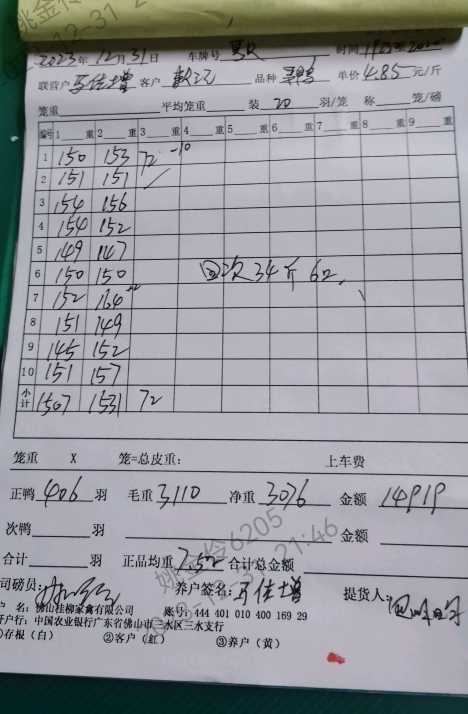 2023年12月31日 车牌号 时间
联营户 马佳增 客户 品种 单价 4.85 元/斤
笼重 平均笼重 装 20 羽/笼 称 笼/磅
编号 1 重 2 重 3 重 4 重 5 重 6 重 7 重 8 重 9 重
1 150 153 72 -10
2 151 151
3 154 156
4 154 152
5 149 147
6 150 150 次34斤 62
7 152 164
8 151 149
9 145 152
10 151 157
小计 1507 1531 72
笼重 X 笼=总皮重： 上车费
正鸭 406 羽 毛重 3110 净重 3076 金额 14919
次鸭 羽 金额
合计 羽 正品均重 7.52 合计总金额
司磅员： 养户签名：马佳增 提货人：
户 名：佛山桂柳家禽有限公司 账号：444 401 010 400 169 29
开户行：中国农业银行广东省佛山市三水区三水支行
①存根（白） ②客户（红） ③养户（黄）
6205
21:46